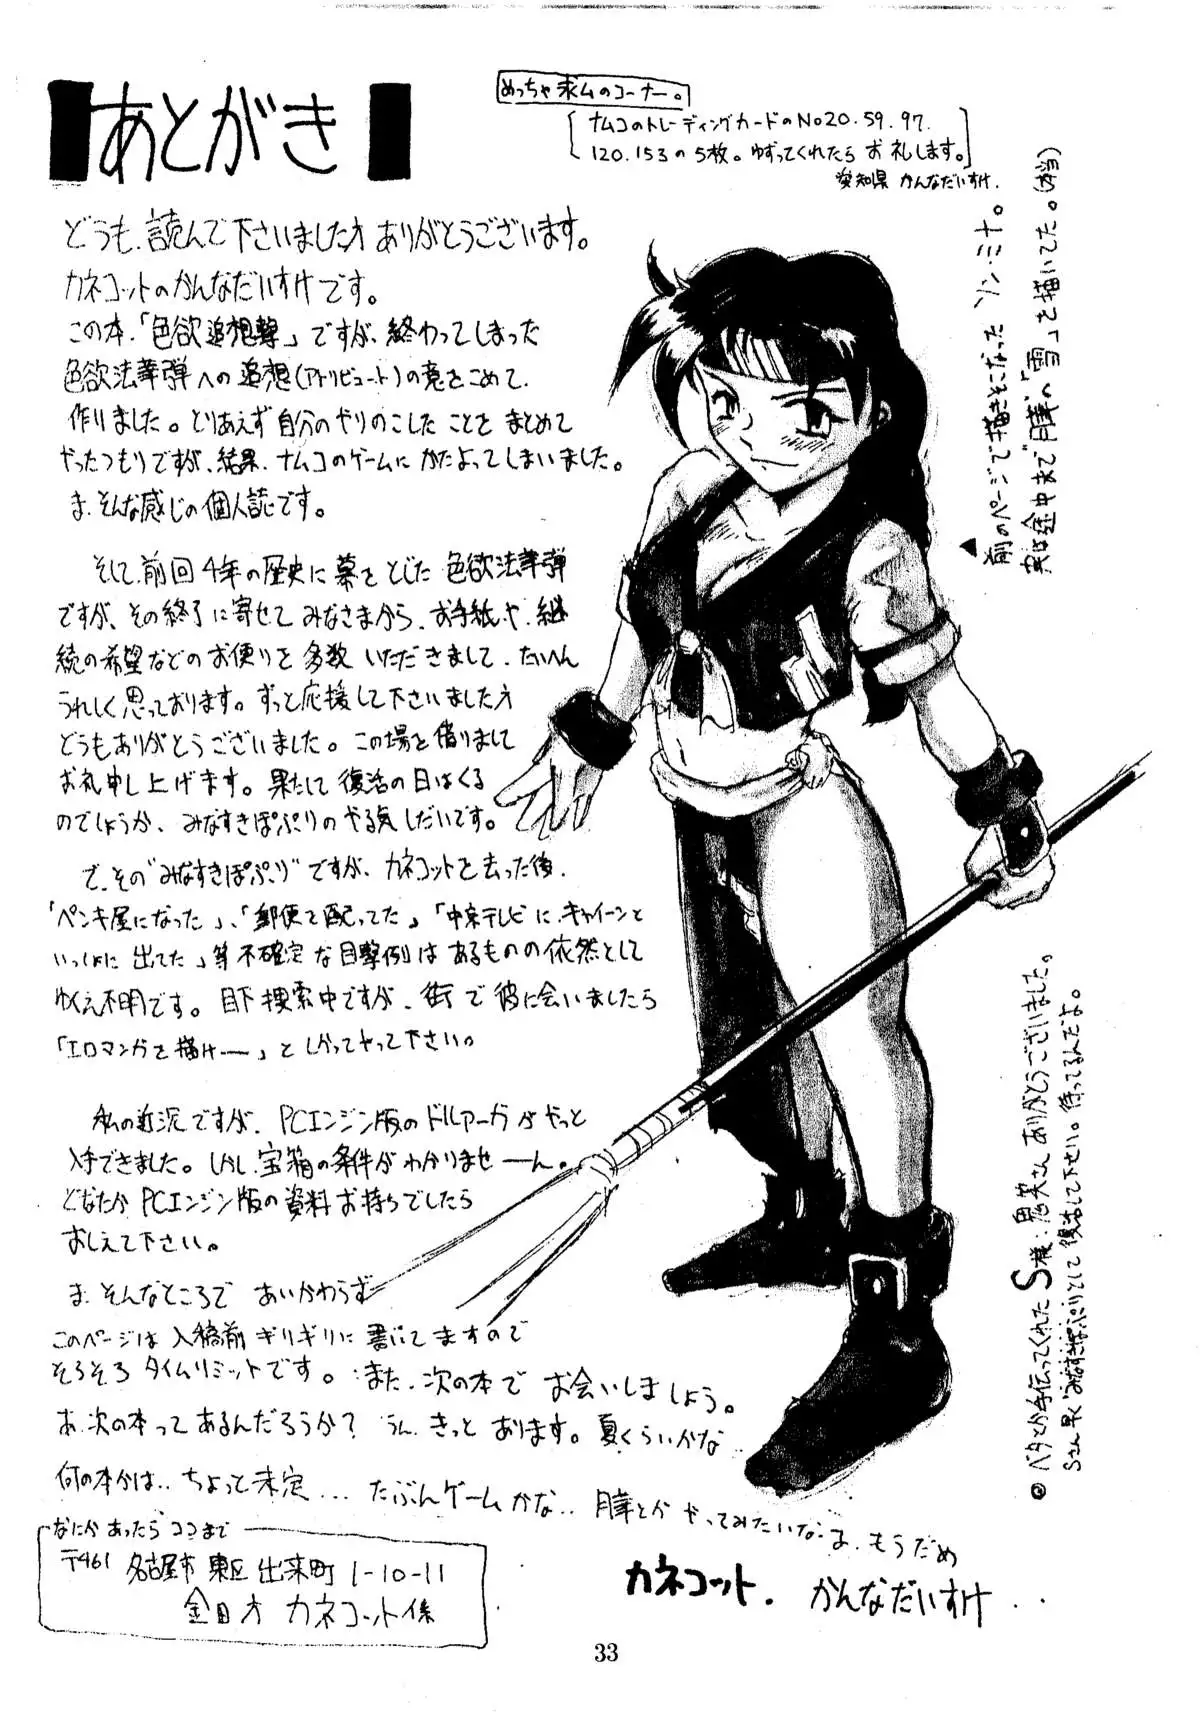 あとがき
めっちゃ求ムのコーナー。
ナムコのトレーディングカードのNo20.59.97.
120.153の5枚。ゆずってくれたらお礼します。
愛知県 かんなだいすけ.
どうも、読んで下さいました方ありがとうございます。
カネコットのかんなだいすけです。
この本、「色欲追想撃」ですが、終わってしまった
色欲法華弾への追想(アトリビュート)の意をこめて、
作りました。とりあえず自分のやりのこしたことをまとめて
やったつもりですが、結果、ナムコのゲームにかたよってしまいました。
ま、そんな感じの個人誌です。
そして、前回4年の歴史に幕をとじた色欲法華弾
ですが、その終了に寄せてみなさまから、お手紙や、継
続の希望などのお便りを多数いただきまして、たいへん
うれしく思っております。ずっと応援して下さいました方
どうもありがとうございました。この場を借りまして
お礼申し上げます。果たして復活の日はくる
のでしょうか、みなすきぽぷりのやる気しだいです。
で、その"みなすきぽぷり"ですが、カネコットを去った後、
「ペンキ屋になった」、「郵便を配ってた」「中京テレビにキャイーンと
いっしょに出てた」等不確定な目撃例はあるものの依然として
ゆくえ不明です。目下捜索中ですが、街で彼に会いましたら
「エロマンガを描けー」としかってやって下さい。
私の近況ですが、PCエンジン版のドルアーガがやっと
入手できました。しかし、宝箱の条件がわかりませーん。
どなたかPCエンジン版の資料お持ちでしたら
おしえて下さい。
ま、そんなところであいかわらず
このページは入稿前ギリギリに書いてますので
そろそろタイムリミットです。また、次の本でお会いしましょう。
お、次の本ってあるんだろうか?うん、きっとあります。夏くらいかな
何の本かは‥ちょっと未定...たぶんゲームかな‥
なにかあったらココまで
〒461 名古屋市東区出来町1-10-11
金田方 カネコット係
カネコット. かんなだいすけ..
▲前のページで描きそこなったソン・ミナ。
実は途中まで"「雪」を描いてた。(本当)
◎ベタとか手伝ってくれたS様、ありがとうございました。
Sさん早く"みなすきぽぷり"として復活して下せい。待ってるんだよ。
33